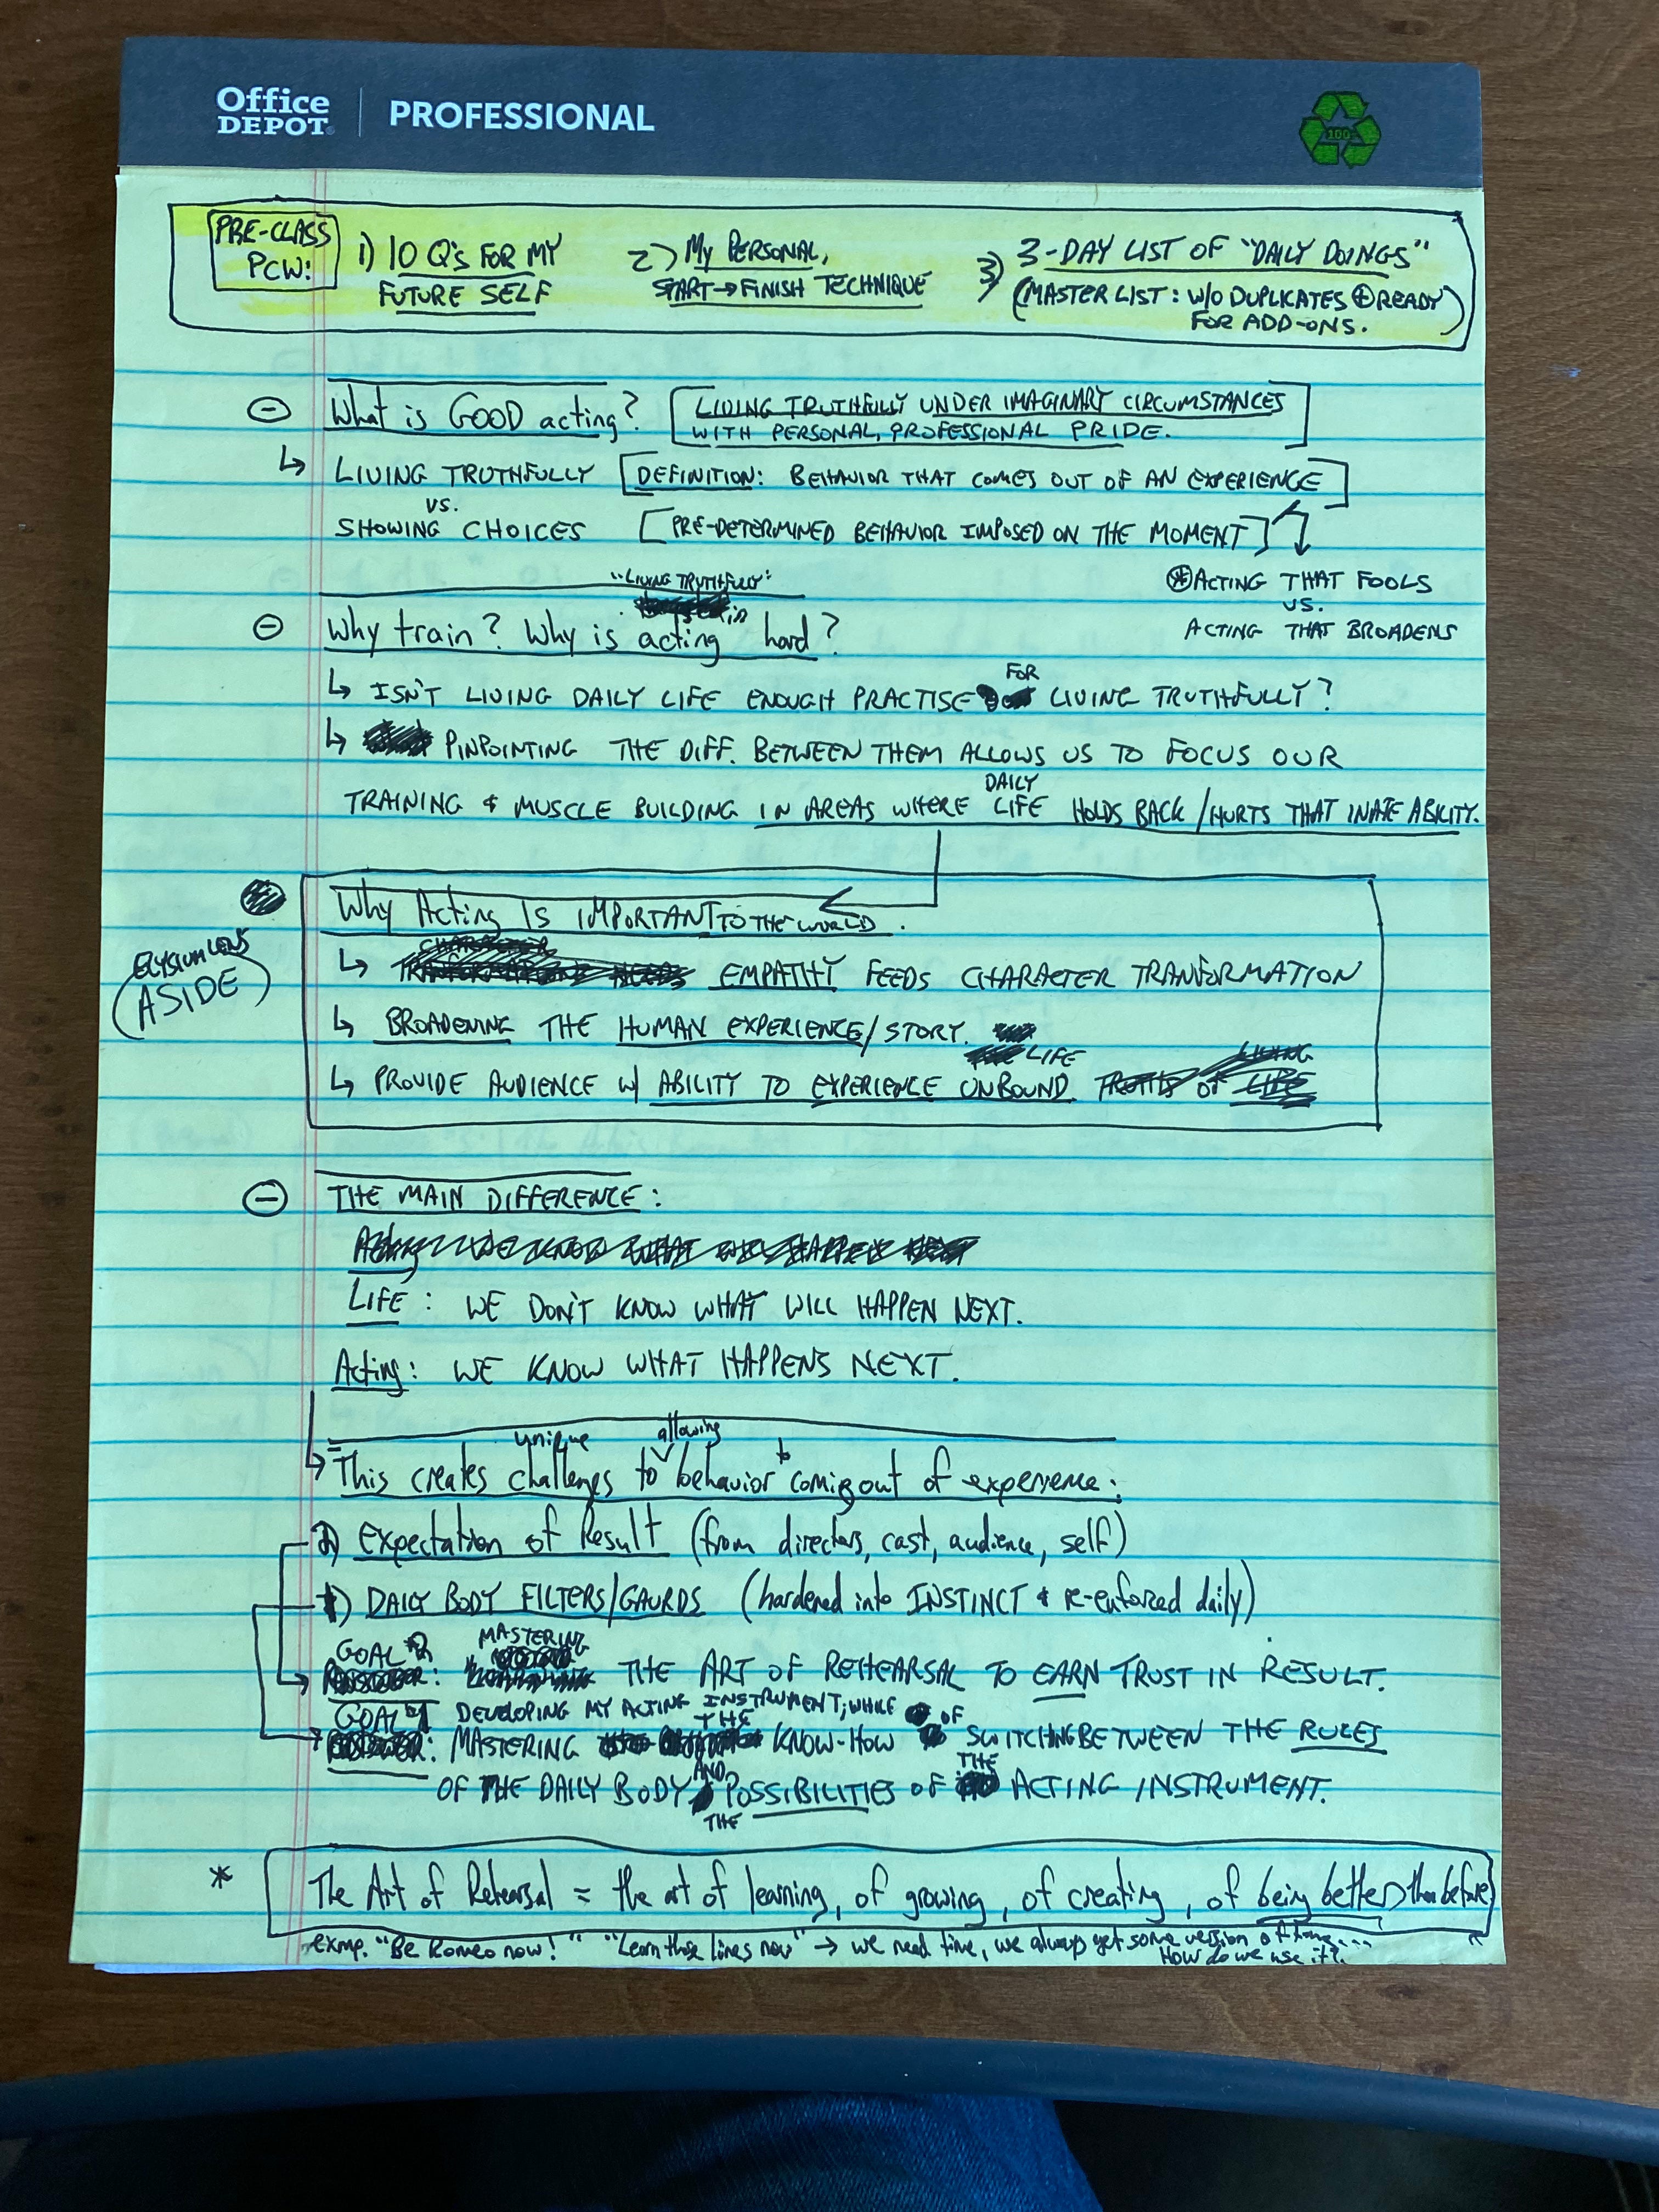 Office DEPOT | PROFESSIONAL
100
PRE-CLASS PCW:
1) 10 Q's FOR MY FUTURE SELF
2) My PERSONAL, START → FINISH TECHNIQUE
3) 3-DAY LIST OF "DAILY DOINGS"
(MASTER LIST: W/O DUPLICATES ⊕ READY FOR ADD-ONS.)
⊖ What is GOOD acting? [LIVING TRUTHFULLY UNDER IMAGINARY CIRCUMSTANCES
WITH PERSONAL, PROFESSIONAL PRIDE.]
↳ LIVING TRUTHFULLY [DEFINITION: BEHAVIOR THAT COMES OUT OF AN EXPERIENCE]
VS.
SHOWING CHOICES [PRE-DETERMINED BEHAVIOR IMPOSED ON THE MOMENT]
⊛ ACTING THAT FOOLS
VS.
ACTING THAT BROADENS
"LIVING TRUTHFULLY"
⊖ Why train? Why is in acting hard?
↳ ISN'T LIVING DAILY LIFE ENOUGH PRACTISE FOR LIVING TRUTHFULLY?
↳ PINPOINTING THE DIFF. BETWEEN THEM ALLOWS US TO FOCUS OUR
TRAINING & MUSCLE BUILDING IN AREAS WHERE DAILY LIFE HOLDS BACK/HURTS THAT INATE ABILITY.
ELYSIUM LENS
(ASIDE)
Why Acting IS IMPORTANT TO THE WORLD.
↳ EMPATHY FEEDS CHARACTER TRANSFORMATION
↳ BROADENING THE HUMAN EXPERIENCE/STORY.
↳ PROVIDE AUDIENCE W/ ABILITY TO EXPERIENCE UNBOUND LIFE
⊖ THE MAIN DIFFERENCE:
LIFE: WE DON'T KNOW WHAT WILL HAPPEN NEXT.
Acting: WE KNOW WHAT HAPPENS NEXT.
↳ This creates unique challenges to allowing behavior to coming out of experience:
2) Expectation of Result (from directors, cast, audience, self)
1) DAILY BODY FILTERS/GAURDS (hardened into INSTINCT & re-enforced daily)
GOAL 2: MASTERING THE ART OF REHEARSAL TO EARN TRUST IN RESULT.
GOAL 1: DEVELOPING MY ACTING INSTRUMENT; WHILE
MASTERING THE KNOW-HOW OF SWITCHING BETWEEN THE RULES
OF THE DAILY BODY AND THE POSSIBILITIES OF THE ACTING INSTRUMENT.
* The Art of Rehearsal = the art of learning, of growing, of creating, of being better than before
exmp. "Be Romeo now!" "Learn those lines now" → we need time, we always get some version of time....
How do we use it?